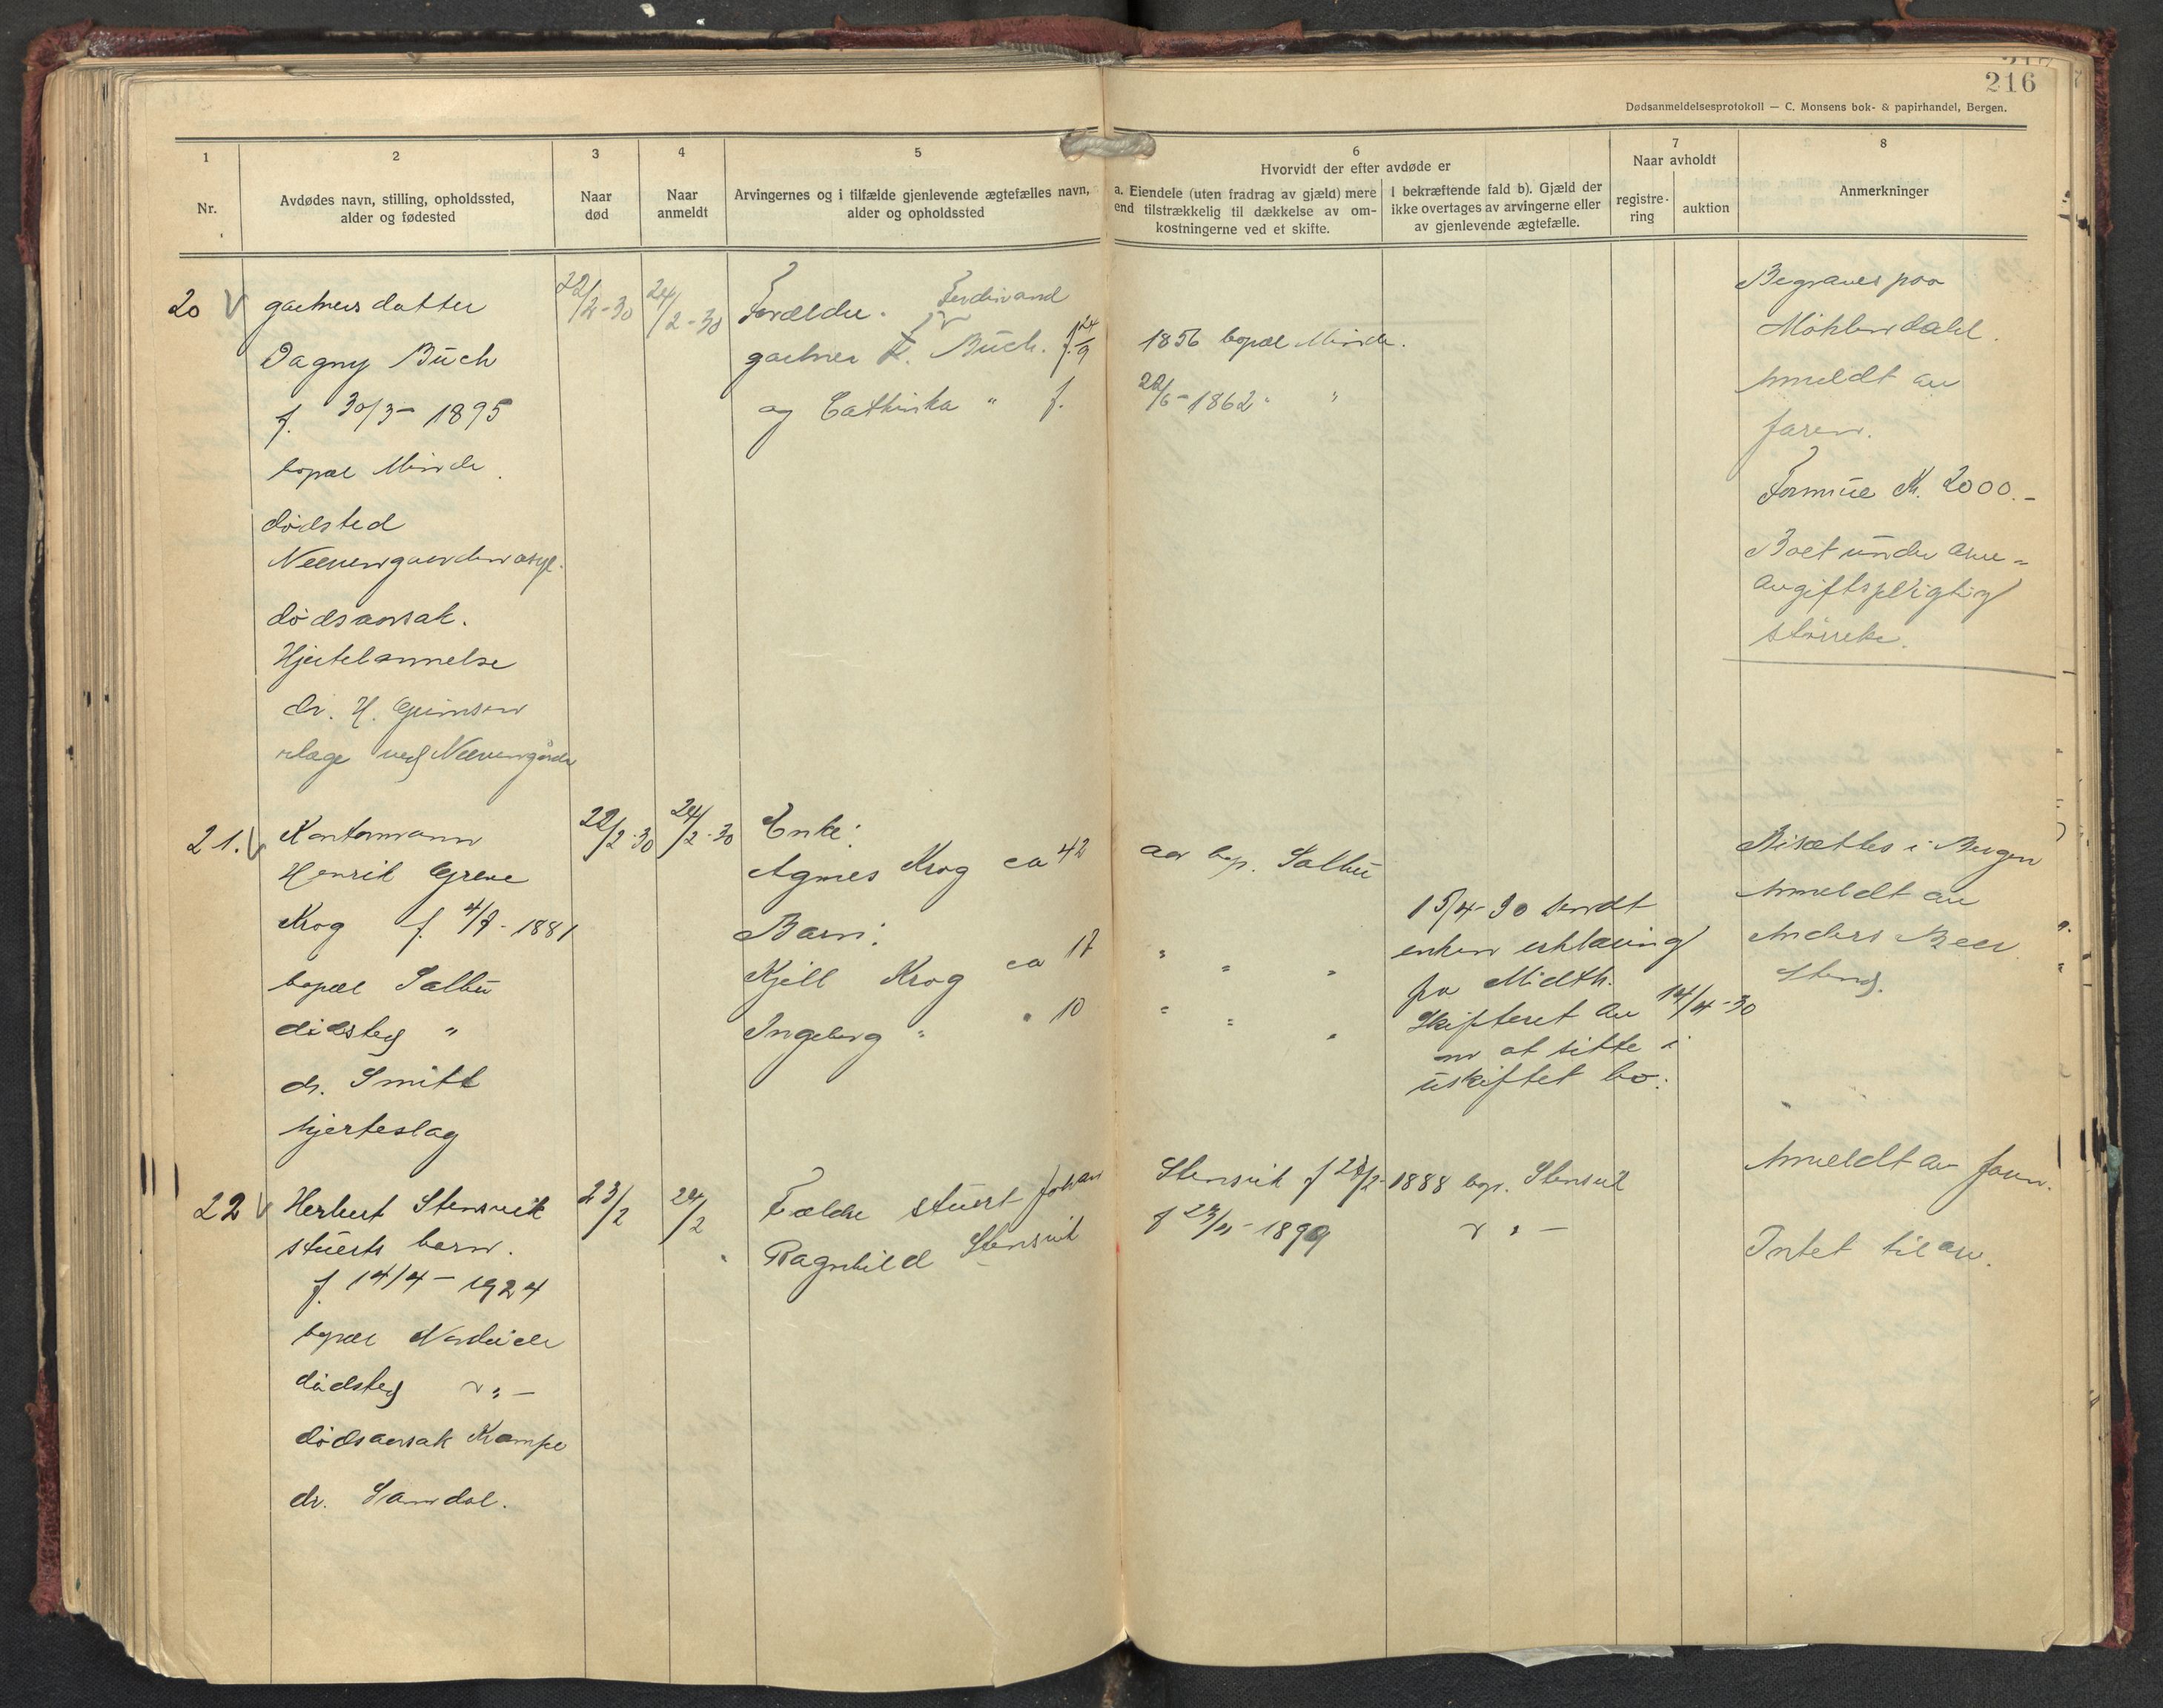 216
Dødsanmeldelsesprotokoll — C. Monsens bok- & papirhandel, Bergen.
1
Nr.
2
Avdødes navn, stilling, opholdssted,
alder og fødested
3
Naar
død
4
Naar
anmeldt
5
Arvingernes og i tilfælde gjenlevende ægtefælles navn,
alder og opholdssted
6
Hvorvidt der efter avdøde er
a. Eiendele (uten fradrag av gjæld) mere
end tilstrækkelig til dækkelse av om-
kostningerne ved et skifte.
I bekræftende fald b). Gjæld der
ikke overtages av arvingerne eller
av gjenlevende ægtefælle.
7
Naar avholdt
registre-
ring
auktion
8
Anmerkninger
20
gartnersdatter
Dagny Büch
f. 30/3 - 1895
bopæl Minde.
dødsted
Neevengaardens asyl.
dødsaarsak.
Hjertelammelse
dr. H.
læge ved Neevengården
22/2-30
24/2-30
Forældre.
Ferdinand
gartner F. Büch. f. 24/9
og Cathinka " f.
1856 bopæl Minde.
22/6-1862 " "
Begraves paa
Möhlendahl.
Anmeldt av
faren.
Formue Kr. 2000.-
Boet under arve-
avgiftspligtig
størrelse.
21.
Kontormann
Henrik Greve
Krog f. 4/7 - 1881
bopæl Salhu
dødsted "
dr. Smitt
hjerteslag
22/2-30
24/2-30
Enke:
Agnes Krog ca 42
Barn:
Kjell Krog ca 17
Ingeborg " " 10
aar bop. Salhu
" " "
" " "
15/4-30 sendt
enken erklæring
fra Midth.
Skifteret av 14/4-30
om at sitte i
uskiftet bo.
Bisættes i Bergen
Anmeldt av
Anders Beer
Stend.
22
Herbert Stensvik
stuerts barn.
f. 14/4 - 1924
bopæl
dødsted - " -
dødsaarsak Krampe
dr. Samdal.
23/2
24/2
Fældre stuert Johan
Ragnhild Stensvik
Stensvik f 28/2-1888 bop. Stensvik
f 23/11-1899 - " -
Anmeldt av faren.
Intet til arv.